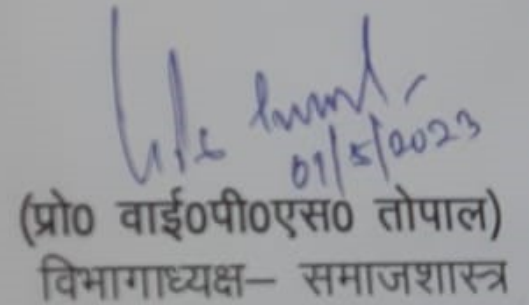 01/5/2023
(प्रो0 वाई0पी0एस0 तोपाल)
विभागाध्यक्ष– समाजशास्त्र